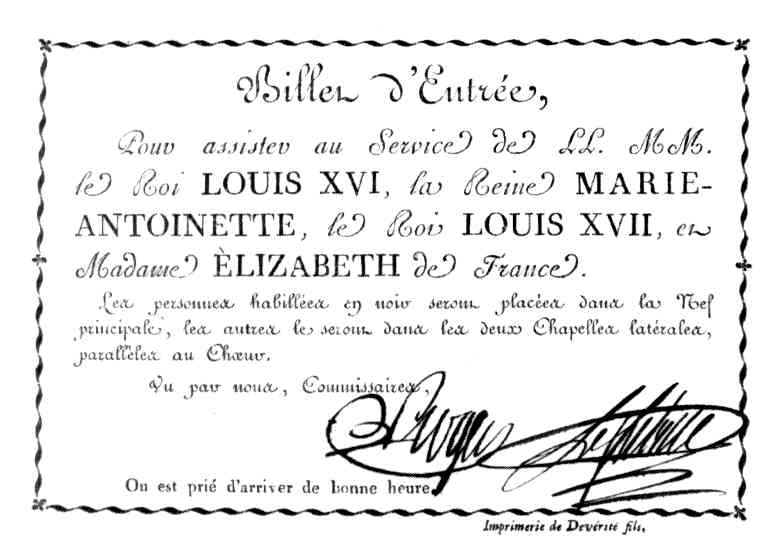 Billet d'Entrée,
Pour assister au Service de LL. MM.
le Roi LOUIS XVI, la Reine MARIE-
ANTOINETTE, le Roi LOUIS XVII, et
Madame ÈLIZABETH de France.
Les personnes habillées en noir seront placées dans la Nef
principale, les autres le seront dans les deux Chapelles latérales,
parallèles au Chœur.
Vu par nous, Commissaires,
On est prié d'arriver de bonne heure
Imprimerie de Devérité fils.